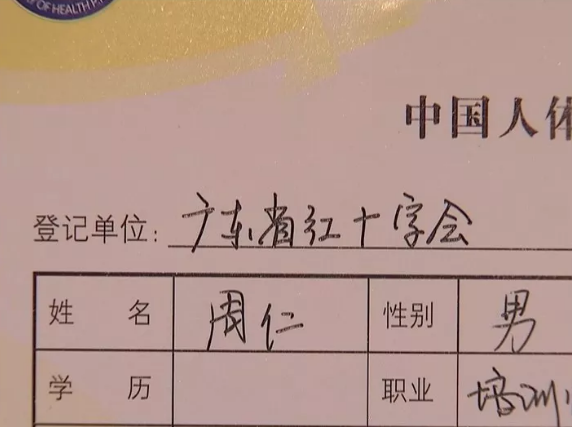 OF HEALTH
中国人体
登记单位：广东省红十字会
姓 名 周仁 性别 男
学 历 职业 培训